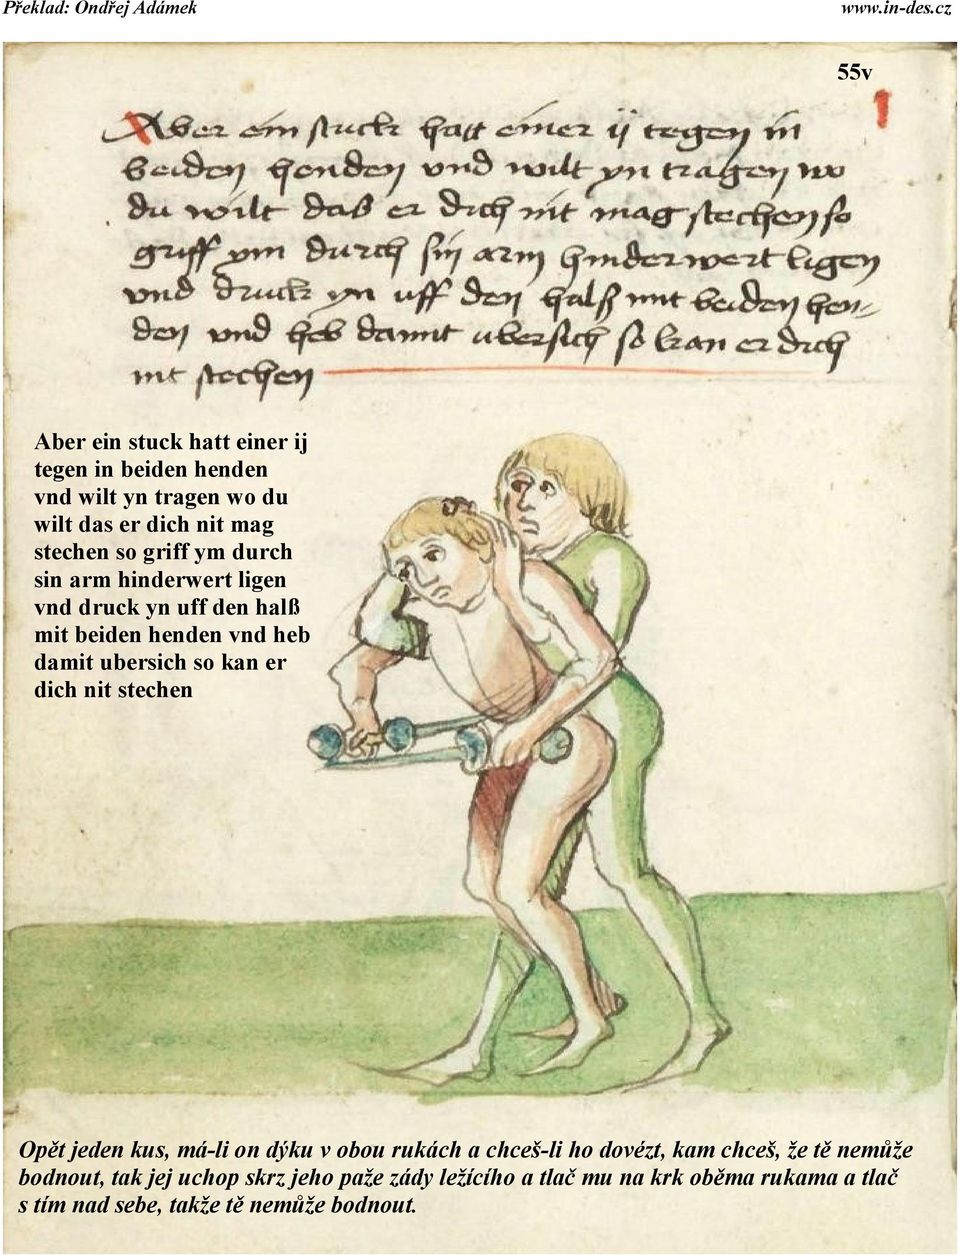 Překlad: Ondřej Adámek
www.in-des.cz
55v
Aber ein stuck hatt einer ij tegen in
beiden henden vnd wilt yn tragen wo
du wilt das er dich nit mag stechen so
griff ym durch sin arm hinderwert ligen
vnd druck yn uff den halß mit beiden hen-
den vnd heb damit ubersich so kan er dich
nit stechen
Aber ein stuck hatt einer ij
tegen in beiden henden
vnd wilt yn tragen wo du
wilt das er dich nit mag
stechen so griff ym durch
sin arm hinderwert ligen
vnd druck yn uff den halß
mit beiden henden vnd heb
damit ubersich so kan er
dich nit stechen
Opět jeden kus, má-li on dýku v obou rukách a chceš-li ho dovézt, kam chceš, že tě nemůže
bodnout, tak jej uchop skrz jeho paže zády ležícího a tlač mu na krk oběma rukama a tlač
s tím nad sebe, takže tě nemůže bodnout.